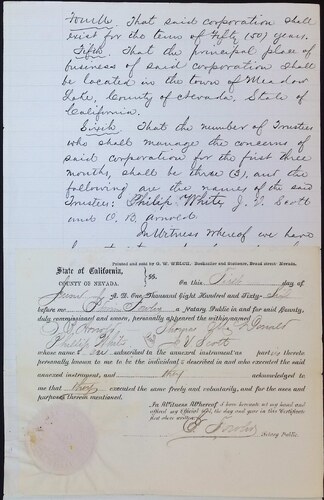 Fourth. That said corporation shall
exist for the term of Fifty (50) years.
Fifth. That the principal place of
business of said corporation shall
be located in the town of Meadow
Lake, County of Nevada, State of
California.
Sixth. That the number of Trustees
who shall manage the concerns of
said corporation for the first three
months, shall be three (3), and the
following are the names of the said
Trustees: Philip White, J. V. Scott
and O. B. Arnold.
In Witness whereof we have
Printed and sold by G. W. WELCH, Bookseller and Stationer, Broad street Nevada.
State of California,
COUNTY OF NEVADA. } SS.
On this day of
A. D. One Thousand Eight Hundred and Sixty-Six
before me a Notary Public in and for said County,
duly commissioned and sworn, personally appeared the within-named
Philip White J V Scott
whose names are subscribed to the annexed instrument as parties thereto
personally known to me to be the individuals described in and who executed the said
annexed instrument, and they acknowledged to
me that they executed the same freely and voluntarily, and for the uses and
purposes therein mentioned.
In Witness Whereof I have hereunto set my hand and
official my Official Seal, the day and year in this Certificate
first above written.
Notary Public.